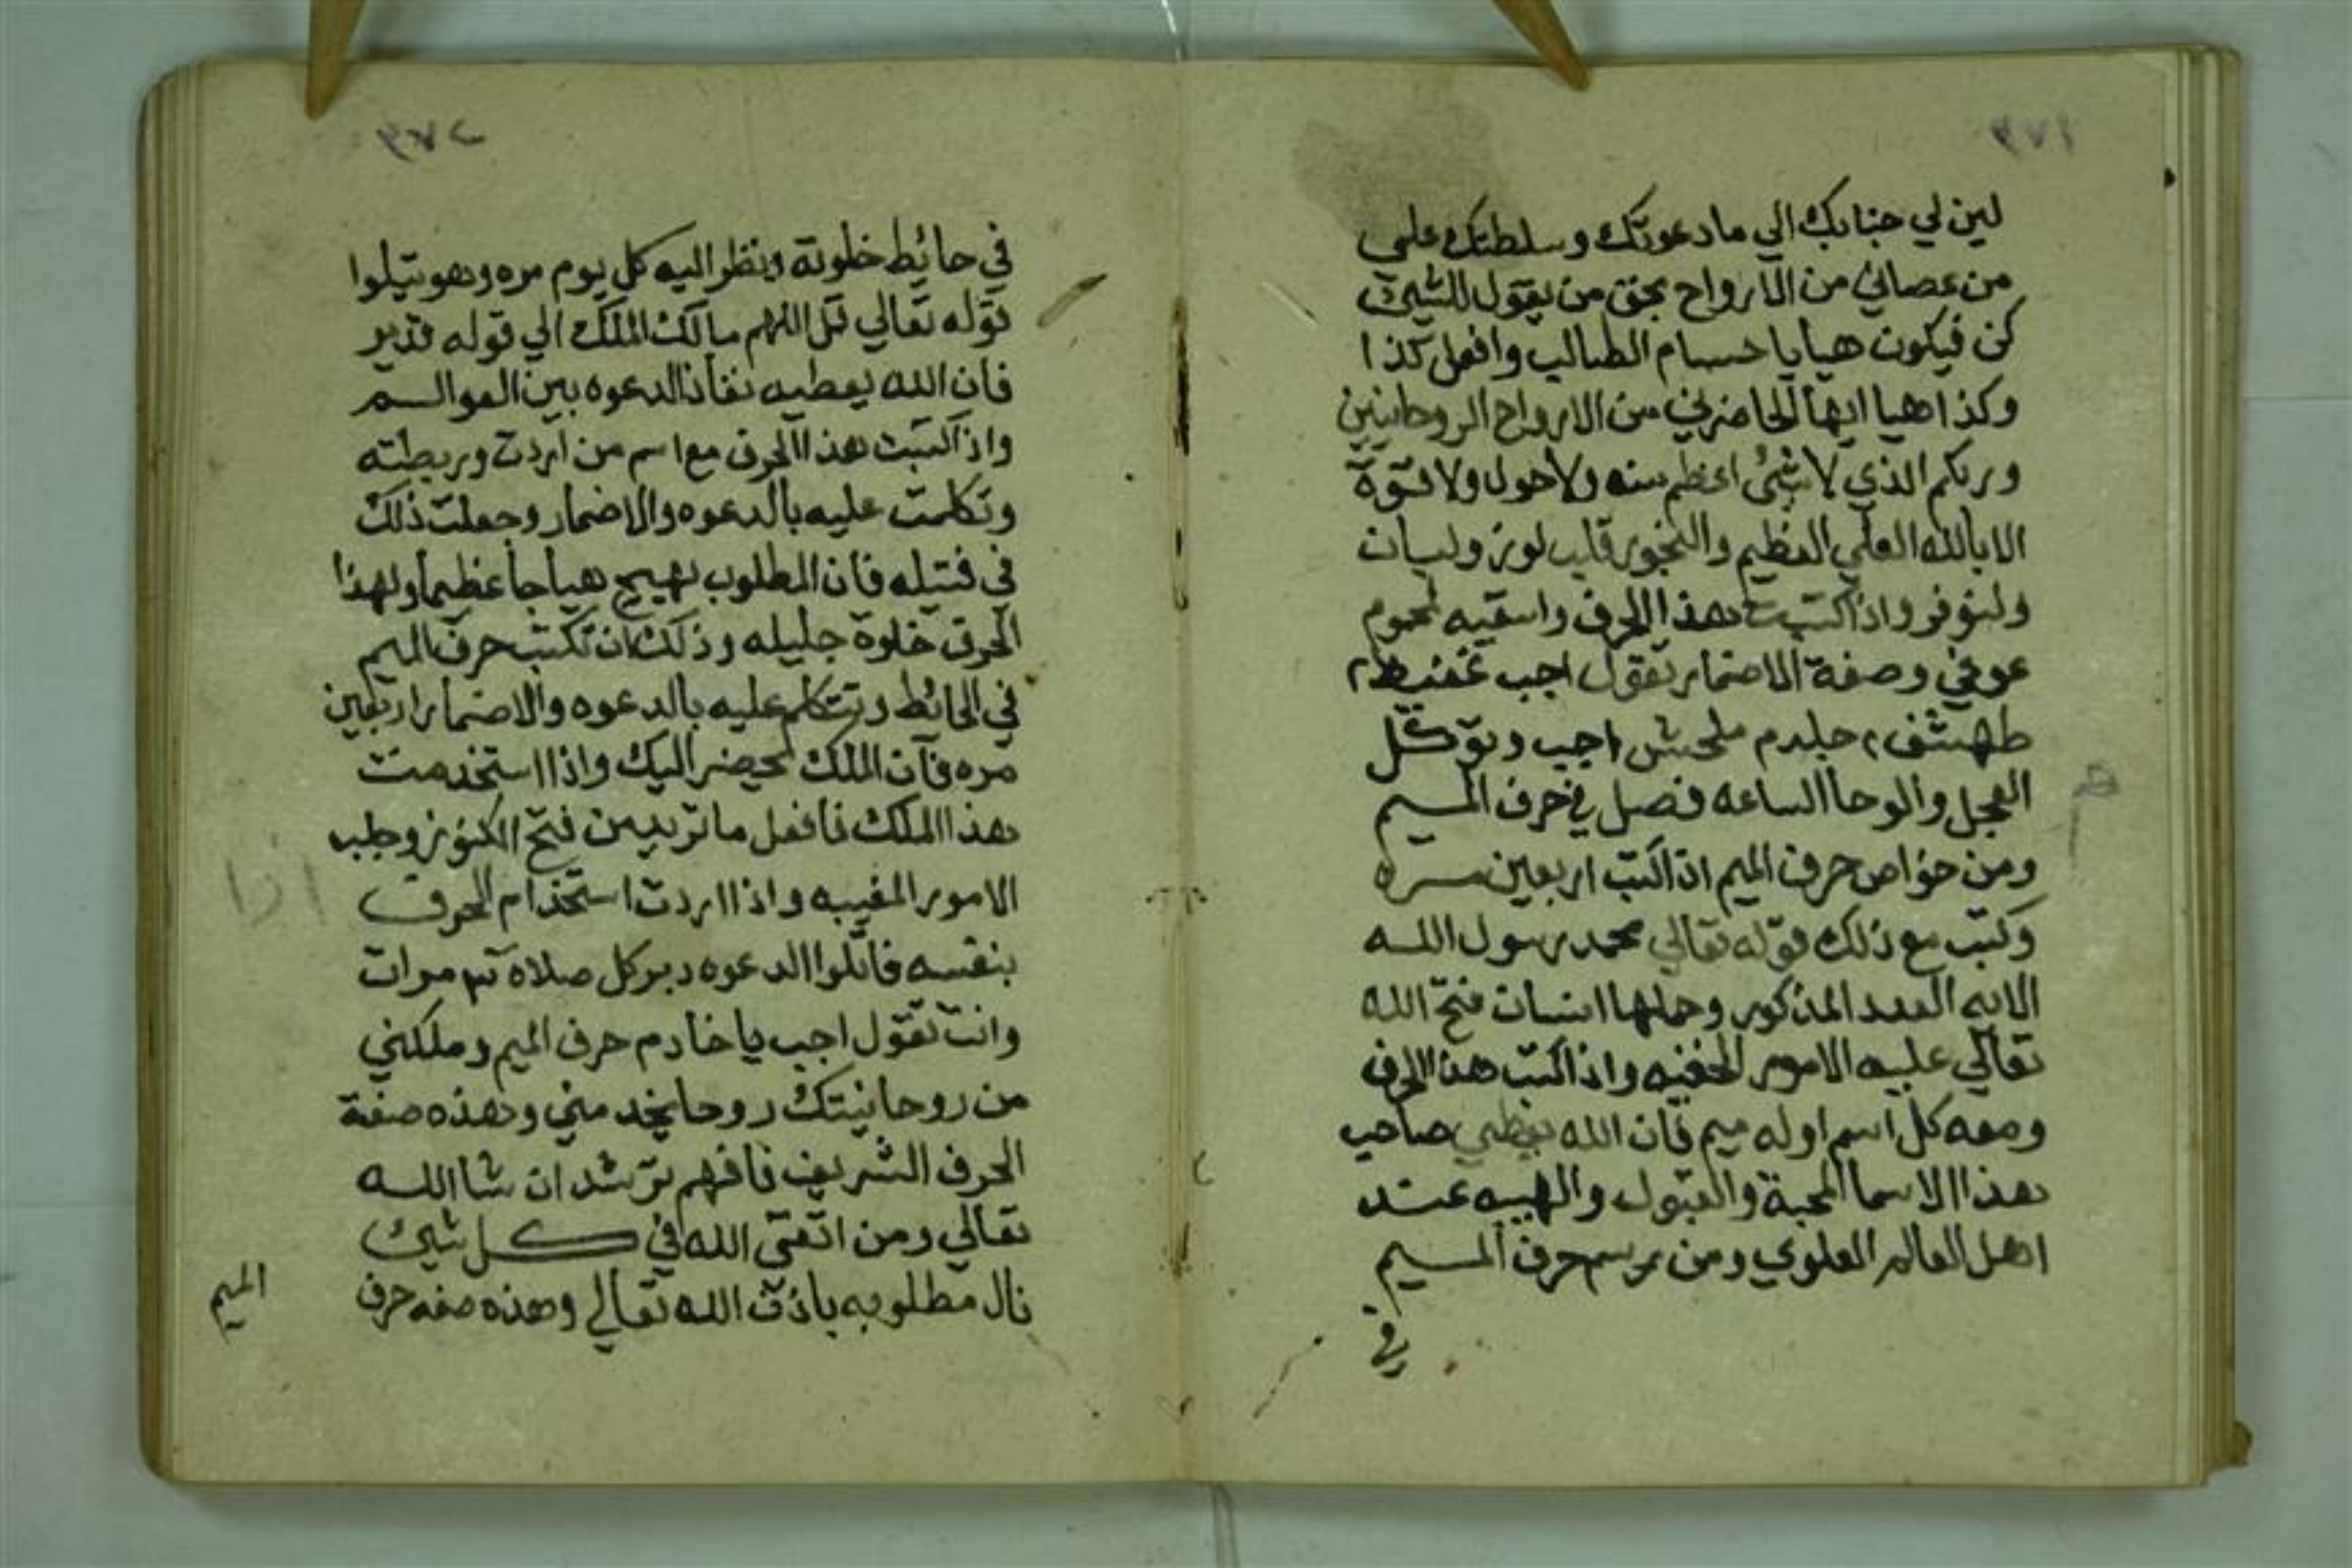 لين لي جنابك الي ما دعوتك وسلطتك علي
من عصاني من الارواح بحق من يقول للشيئ
كن فيكون هيا يا حسام الطالب وافعل كذا
وكذا هيا ايها الحاضرني من الارواح الروحانين
وربكم الذي لا شئ اعظم منه ولا حول ولا قوة
الا بالله العلي العظيم والبخور قلب لوز ولبان
ولنوفر واذا كتبت هذا الحرف واسقيه لمحموم
عوفي وصفة الاضمار تقول اجب
طهشف جلدم ملحش اجب وتوكل
العجل والوحا الساعه فصل في حرف الميم
ومن خواص حرف الميم اذا كتب اربعين مره
وكتب مع ذلك قوله تعالي محمد رسول الله
الايه العدد المذكور وحملها انسان فتح الله
تعالي عليه الامور الخفيه واذا كتب هذا الحرف
ومعه كل اسم اوله ميم فان الله يعطي صاحب
هذا الاسما المحبة والقبول والهيبه عند
اهل العالم العلوي ومن رسم حرف الميم
في
٢٧٢
في حائيط خلوته وينظر اليه كل يوم مره وهو يتلوا
قوله تعالي قل اللهم مالك الملك الي قوله قدير
فان الله يعطيه نفاذ الدعوه بين العوالم
واذا كتبت هذا الحرف مع اسم من اردت وربطته
وتكلمت عليه بالدعوه والاضمار وجعلت ذلك
في فتيله فان المطلوب يهيج هياجا عظيما ولهذا
الحرف خلوة جليله وذلك ان تكتب حرف الميم
في الحائط وتتكلم عليه بالدعوه والاضمار اربعين
مره فان الملك يحضر اليك واذا استخدمت
هذا الملك فافعل ما تريد من فتح الكنوز وجلب
الامور المغيبه واذا اردت استخدام الحرف
بنفسه فاتلوا الدعوه دبر كل صلاه مرات
وانت تقول اجب يا خادم حرف الميم وملكني
من روحانيتك روحا يخدمني وهذه صفة
الحرف الشريف فافهم ترشد ان شا الله
تعالي ومن اتقي الله في كل شيئ
نال مطلوبه باذن الله تعالي وهذه صفه حرف
الميم